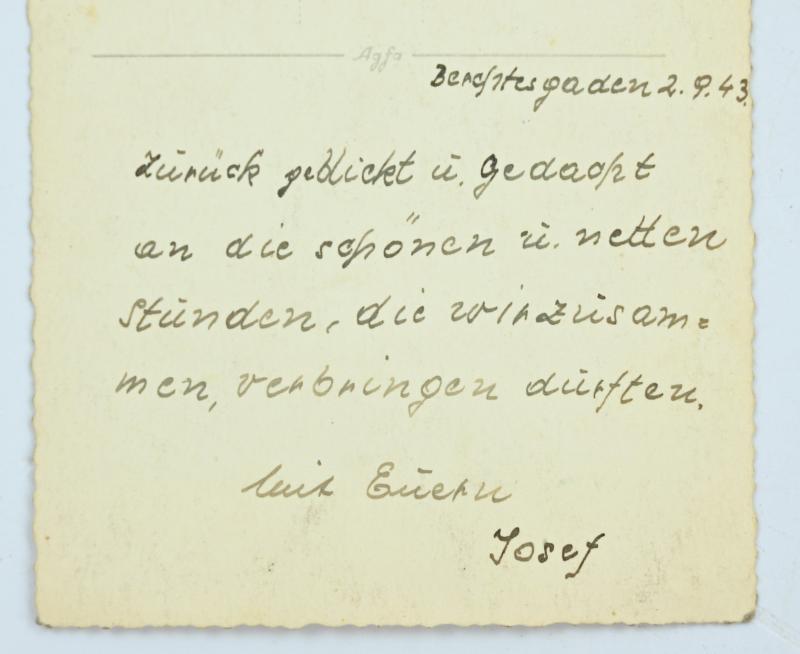 Agfa
Berchtesgaden 2.9.43.
Zurück geblickt u. Gedacht
an die schönen u. netten
Stunden, die wir zusam=
men, verbringen durften.
Euern
Josef